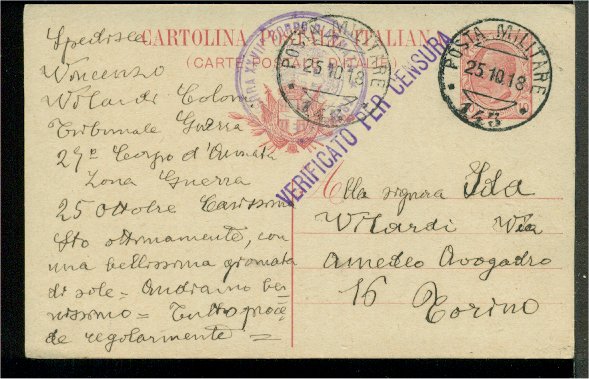 CARTOLINA POSTALE ITALIANA
(CARTE POSTALE D'ITALIE)
POSTA MILITARE
25.10.18
143
POSTA MILITARE
25.10.18
143
VERIFICATO PER CENSURA
Spedisce
Vincenzo
Vilardi Colon
Tribunale Guerra
27º Corpo d'Armata
Zona Guerra
25 Ottobre Carissima
Sto ottimamente, con
una bellissima giornata
di sole = Andiamo be
nissimo = Tutto proce
de regolarmente =
Alla signora Ida
Vilardi Via
Amedeo Avogadro
16 Torino